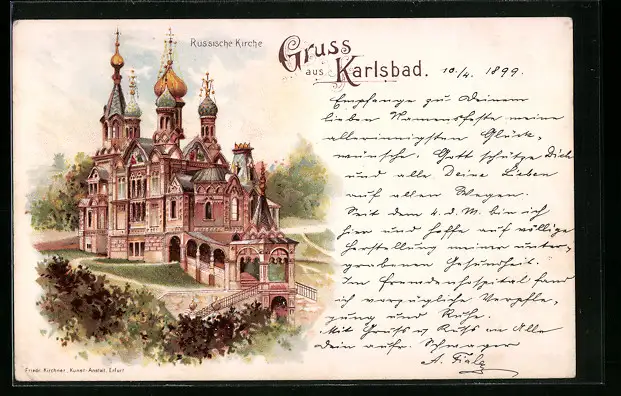 Russische Kirche
Gruss
aus Karlsbad.
10./4. 1899.
Empfange zu Deinem
lieben Namensfeste meine
allerinnigsten Glück-
wünsche. Gott schütze Dich
und alle Deine Lieben
auf allen Wegen.
Seit dem 4. d. M. bin ich
hier und hoffe auf völlige
Herstellung meiner unter-
grabenen Gesundheit.
Im Fremdenhospital fand
ich vorzügliche Verpfle-
gung und Ruhe.
Mit Gruss u Kuss an Alle
Dein aufr. Schwager
A.
Friedr. Kirchner, Kunst-Anstalt, Erfurt